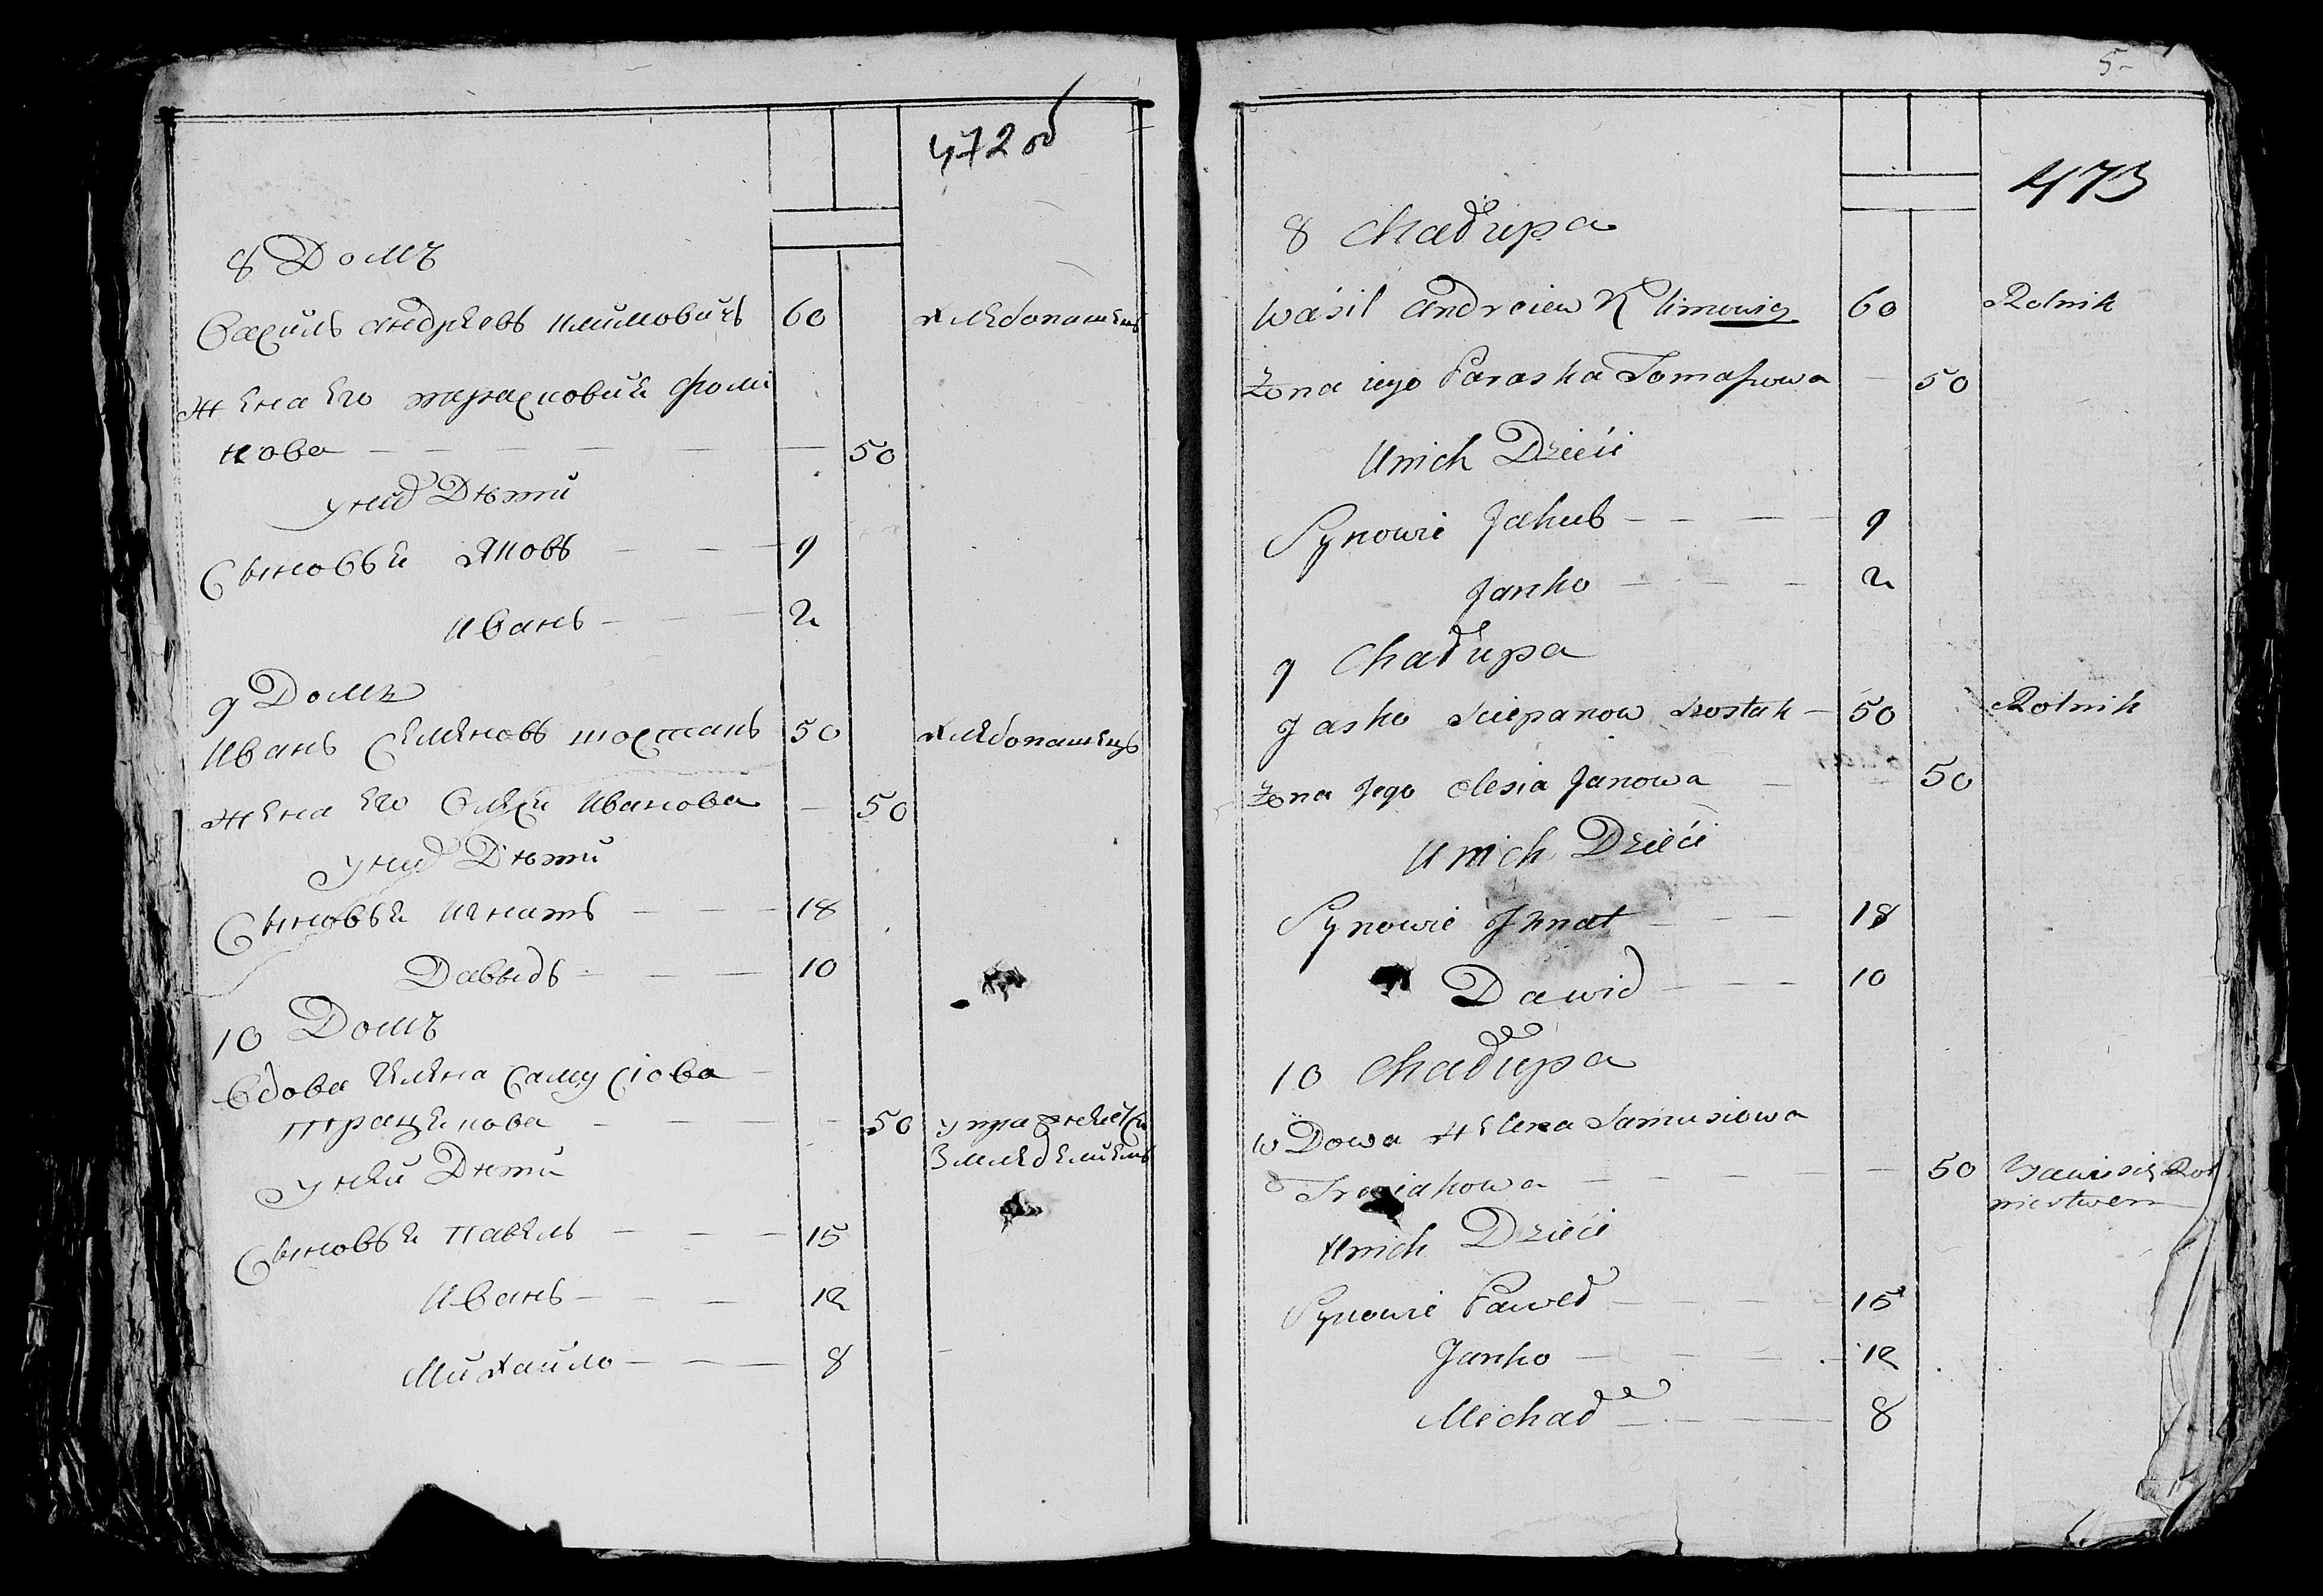 472 об
8 Домъ
Василь Андреевъ Климовичъ 60 хлебопашецъ
жена его Парасковия Фоми
нова — — — — — — 50
у нихъ Дѣти
Сыновья Яковъ — — — 9
Иванъ — — — 2
9 Домъ
Иванъ Семеновъ Шостакъ 50 хлебопашецъ
жена его Олеся Иванова — 50
у нихъ Дѣти
Сыновья Игнатъ — — — 18
Давыдъ — — — 10
10 Домъ
Вдова Елена Самусіова —
— — — — 50
земледелиемъ
у ней Дѣти
Сыновья Павелъ — — — 15
Иванъ — — — 12
Михайло — — — 8
5
473
8 Chałupa
Wasil Andreiew Klimowicz 60 Rolnik
Żona iego Paraska Tomaszowa — 50
U nich Dzieci
Synowie Jakub — — — — 9
Janko — — — 2
9 Chałupa
Jasko Sciepanow Szostak — 50 Rolnik
Żona Jego Olesia Janowa — — 50
U nich Dzieci
Synowie Ihnat — — — 18
Dawid — — — 10
10 Chałupa
wDowa Helena Samusiowa
— — — — — 50 Bawi się Rol
nictwem
U nich Dzieci
Synowie Paweł — — — — 15
Janko — — — — 12
Michał — — — — 8